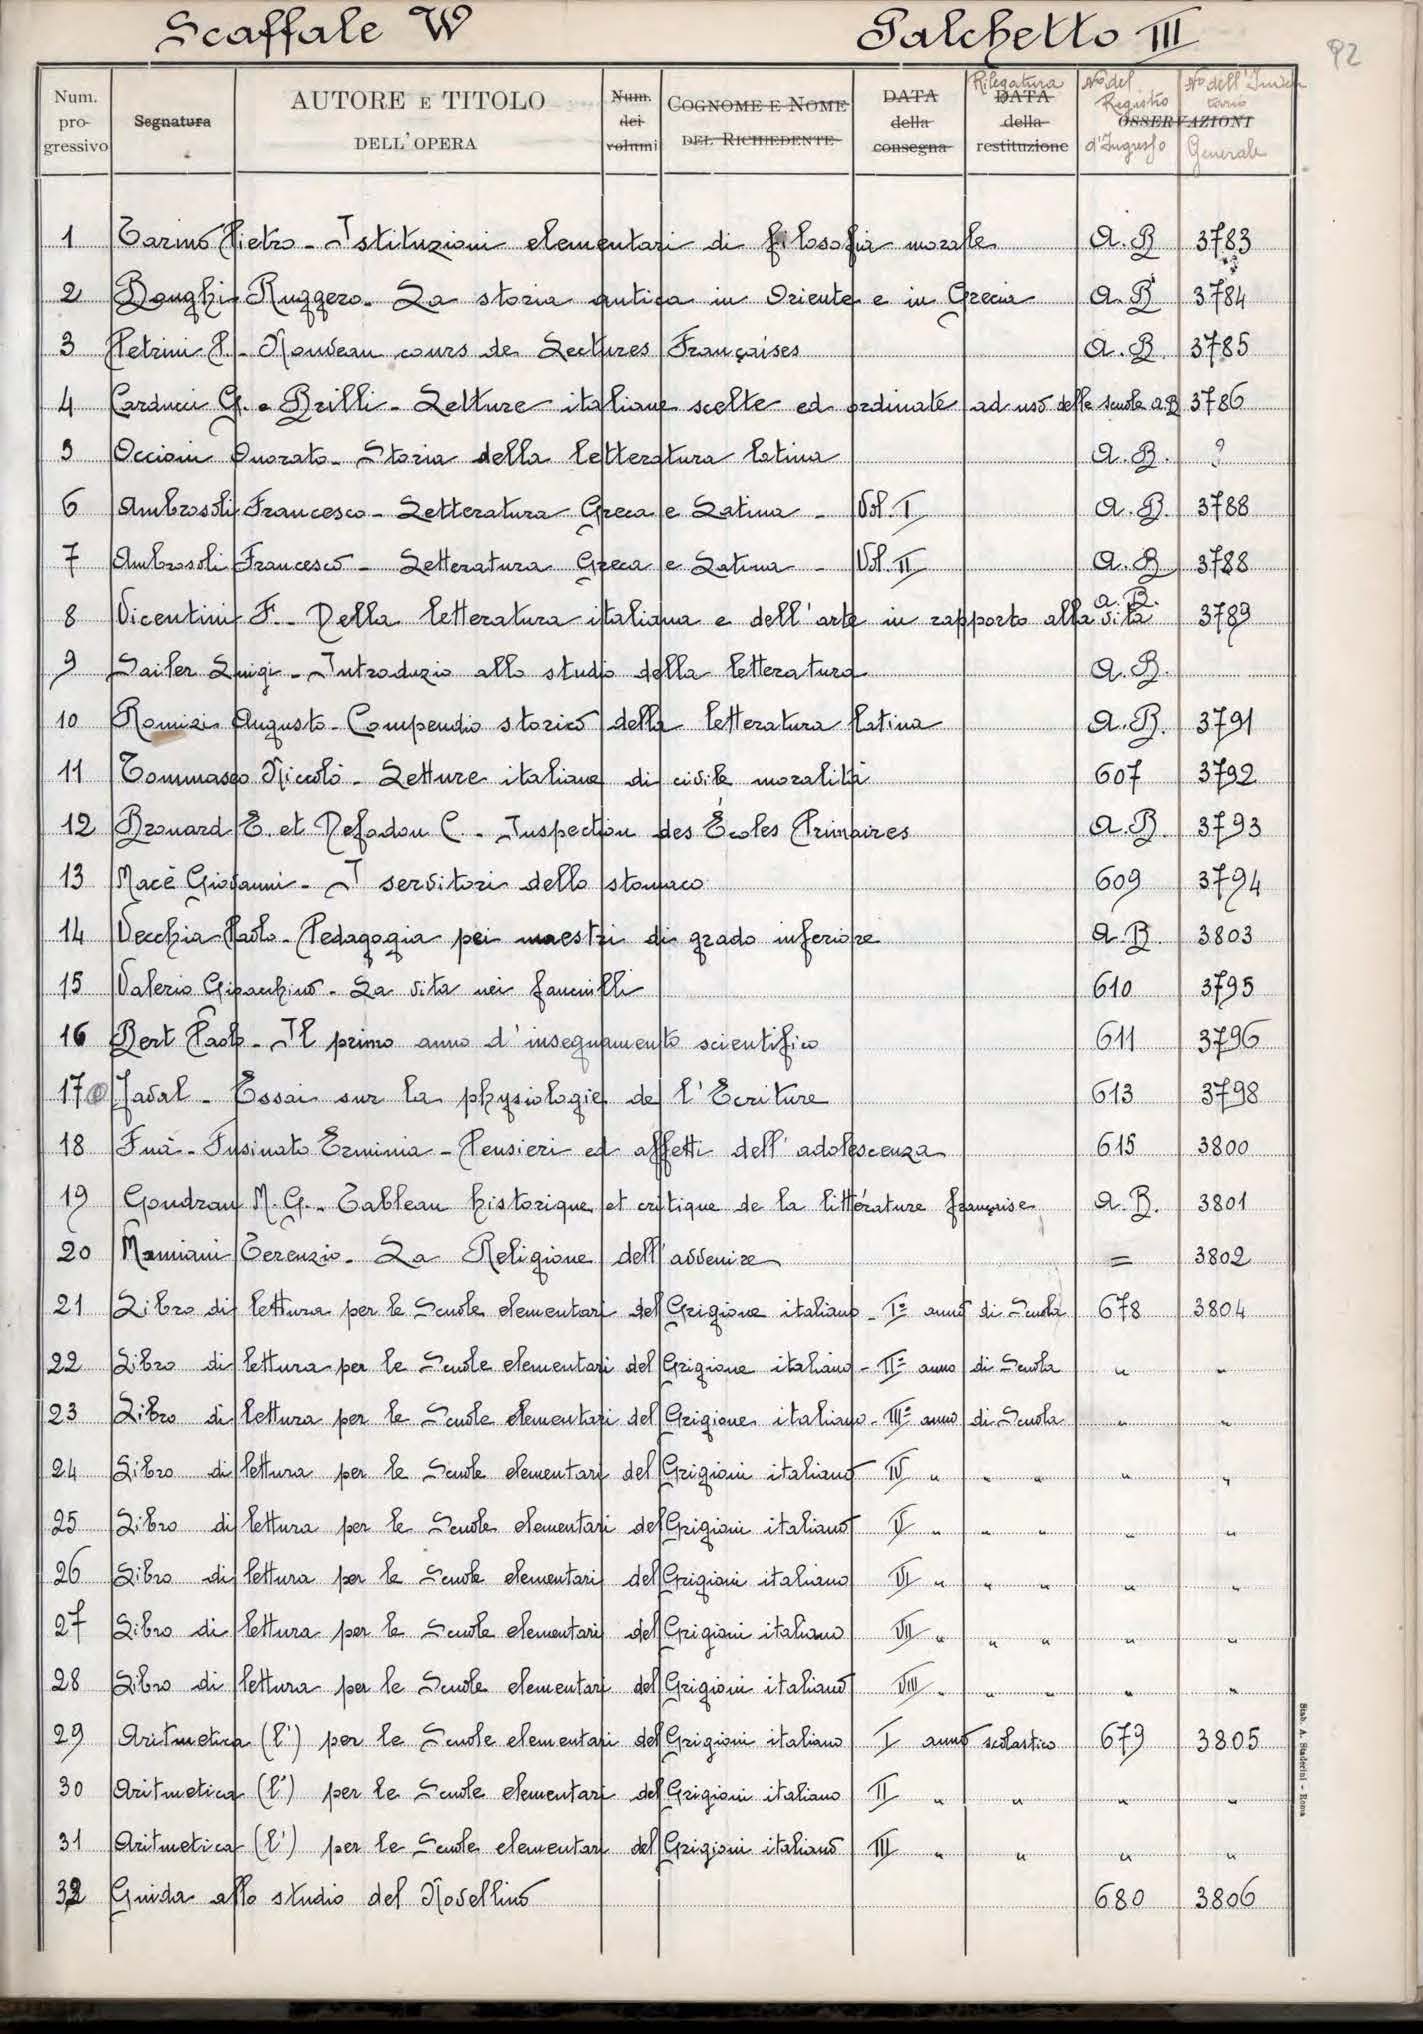 Scaffale W Palchetto III
92
Num. progressivo Segnatura AUTORE E TITOLO DELL'OPERA Num. dei volumi COGNOME E NOME DEL RICHIEDENTE DATA della consegna Rilegatura DATA della restituzione No del Registro d'Ingresso OSSERVAZIONI No dell'Inventario Generale
1 Tarino Pietro - Istituzioni elementari di filosofia morale A.B 3783
2 Bonghi Ruggero - La storia antica in Oriente e in Grecia A.B 3784
3 Petrini P. - Nouveau cours de Lectures Françaises A.B. 3785
4 Carducci G. e Brilli - Letture italiane scelte ed ordinate ad uso delle scuole A.B 3786
5 Occioni Onorato - Storia della letteratura latina A.B. ?
6 Ambrosoli Francesco - Letteratura Greca e Latina - Vol. I A.B. 3788
7 Ambrosoli Francesco - Letteratura Greca e Latina - Vol. II A.B 3788
8 Vicentini F. - Della letteratura italiana e dell'arte in rapporto alla vita A.B. 3789
9 Sailer Luigi - Introduzio allo studio della letteratura A.B.
10 Romizi Augusto - Compendio storico della letteratura latina A.B. 3791
11 Tommaseo Niccolò - Letture italiane di civile moralità 607 3792
12 Brouard E. et Defodon C. - Inspection des Écoles Primaires A.B. 3793
13 Macè Giovanni - I servitori dello stomaco 609 3794
14 Vecchia Paolo - Pedagogia pei maestri di grado inferiore A.B. 3803
15 Valerio Gioacchino - La vita nei fanciulli 610 3795
16 Bert Paolo - Il primo anno d'insegnamento scientifico 611 3796
17 Javal - Essai sur la physiologie de l'Ecriture 613 3798
18 Fuà - Fusinato Erminia - Pensieri ed affetti dell'adolescenza 615 3800
19 Goudran M. G. - Tableau historique et critique de la littérature française A.B. 3801
20 Mamiani Terenzio - La Religione dell'avvenire = 3802
21 Libro di lettura per le Scuole elementari del Grigione italiano - Iº anno di Scuola 678 3804
22 Libro di lettura per le Scuole elementari del Grigione italiano - IIº anno di Scuola " "
23 Libro di lettura per le Scuole elementari del Grigione italiano - IIIº anno di Scuola " "
24 Libro di lettura per le Scuole elementari del Grigioni italiano IV " " " " "
25 Libro di lettura per le Scuole elementari del Grigioni italiano V " " " " "
26 Libro di lettura per le Scuole elementari del Grigioni italiano VI " " " " "
27 Libro di lettura per le Scuole elementari del Grigioni italiano VII " " " " "
28 Libro di lettura per le Scuole elementari del Grigioni italiano VIII " " " " "
29 Aritmetica (l') per le Scuole elementari del Grigioni italiano I anno scolastico 679 3805
30 Aritmetica (l') per le Scuole elementari del Grigioni italiano II " " " "
31 Aritmetica (l') per le Scuole elementari del Grigioni italiano III " " " "
32 Guida allo studio del Novellino 680 3806
Stab. A. Staderini - Roma